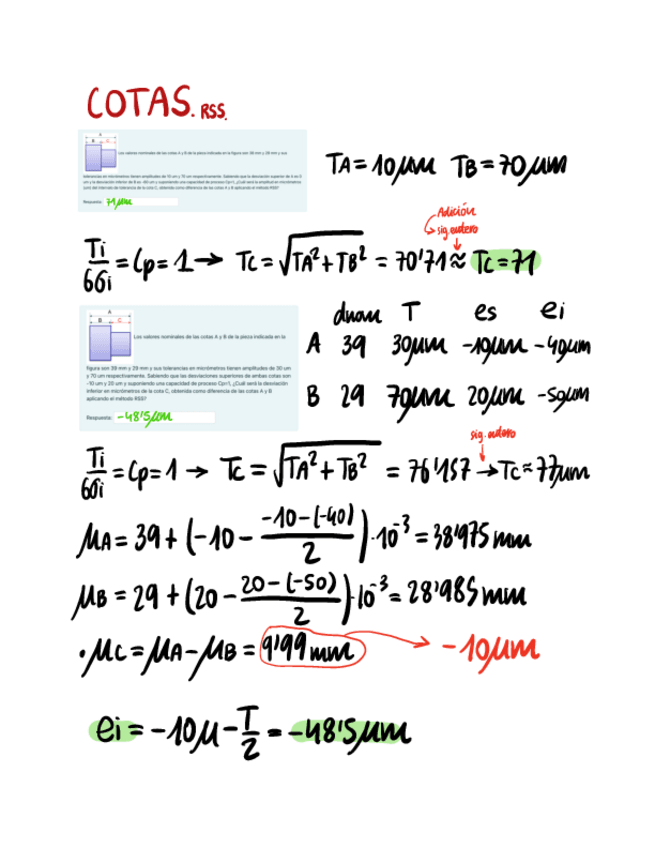 COTAS. RSS.
A
B C
Los valores nominales de las cotas A y B de la pieza indicada en la figura son 39 mm y 29 mm y sus
tolerancias en micrómetros tienen amplitudes de 10 um y 70 um respectivamente. Sabiendo que la desviación superior de A es 0
um y la desviación inferior de B es -60 um y suponiendo una capacidad de proceso Cp=1, ¿Cuál será la amplitud en micrómetros
(um) del intervalo de tolerancia de la cota C, obtenida como diferencia de las cotas A y B aplicando el método RSS?
Respuesta: 71 μm
TA = 10μm TB = 70μm
Adición
sig. entero
Ti/6σi = Cp = 1 → Tc = √TA² + TB² = 70'71 ≈ Tc = 71
A
B C
Los valores nominales de las cotas A y B de la pieza indicada en la
figura son 39 mm y 29 mm y sus tolerancias en micrómetros tienen amplitudes de 30 um
y 70 um respectivamente. Sabiendo que las desviaciones superiores de ambas cotas son
-10 um y 20 um y suponiendo una capacidad de proceso Cp=1, ¿Cuál será la desviación
inferior en micrómetros de la cota C, obtenida como diferencia de las cotas A y B
aplicando el método RSS?
Respuesta: -48'5μm
dnom T es ei
A 39 30μm -10μm -40μm
B 29 70μm 20μm -50μm
sig. entero
Ti/6σi = Cp = 1 → Tc = √TA² + TB² = 76'157 → Tc ≈ 77μm
μA = 39 + (-10 - (-10-(-40))/2)·10⁻³ = 38'975 mm
μB = 29 + (20 - (20-(-50))/2)·10⁻³ = 28'985 mm
·μC = μA - μB = 9'99 mm → -10μm
ei = -10μ - T/2 = -48'5μm